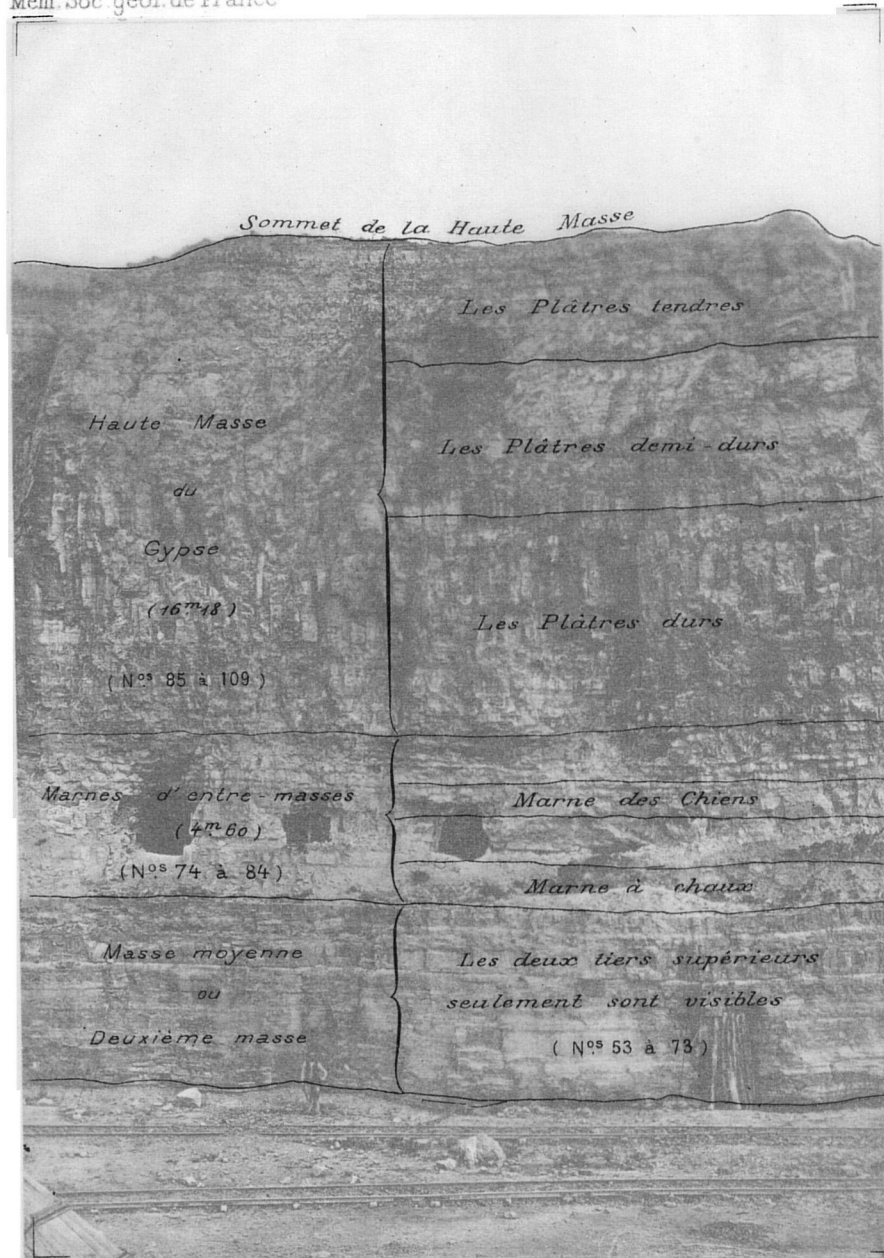 Mém. Soc. géol. de France
Sommet de la Haute Masse
Les Plâtres tendres
Haute Masse
du
Gypse
(16.m18)
(Nos. 85 à 109)
Les Plâtres demi-durs
Les Plâtres durs
Marnes d'entre-masses
(4.m60)
(Nos. 74 à 84)
Marne des Chiens
Marne à chaux
Masse moyenne
ou
Deuxième masse
Les deux tiers supérieurs
seulement sont visibles
(Nos. 53 à 73)